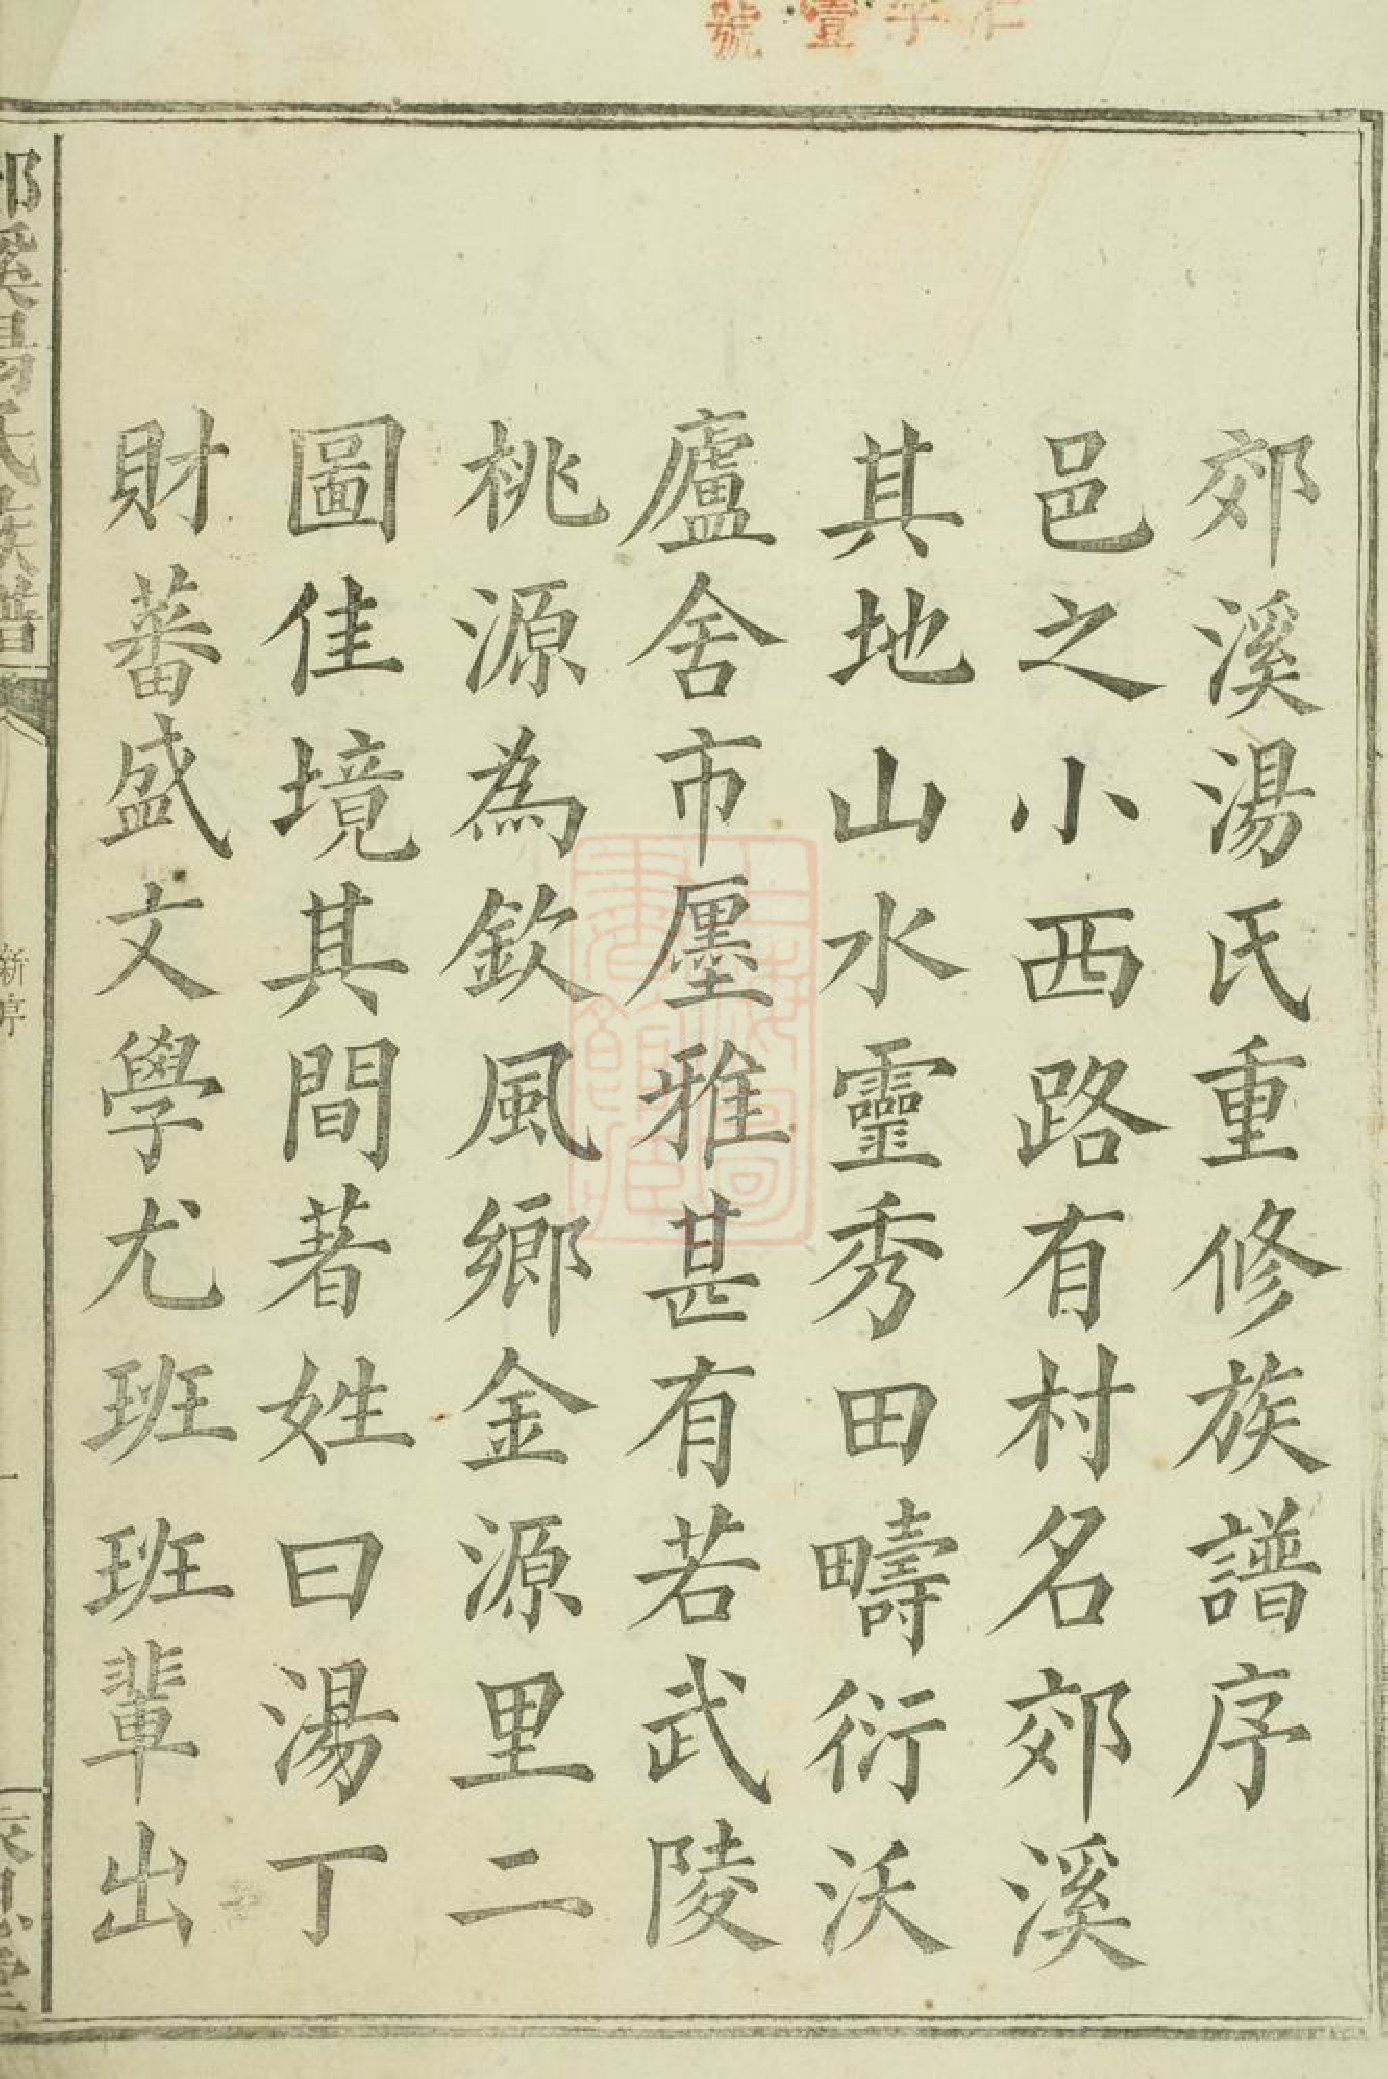 字壹號
郊溪湯氏重修族譜序
邑之小西路有村名郊溪
其地山水靈秀田疇衍沃
廬舍市廛雅甚有若武陵
桃源為欽風鄉金源里二
圖佳境其間著姓曰湯丁
財蕃盛文學尤班班輩出
郊溪湯氏族譜
新序
一
上海圖書館藏